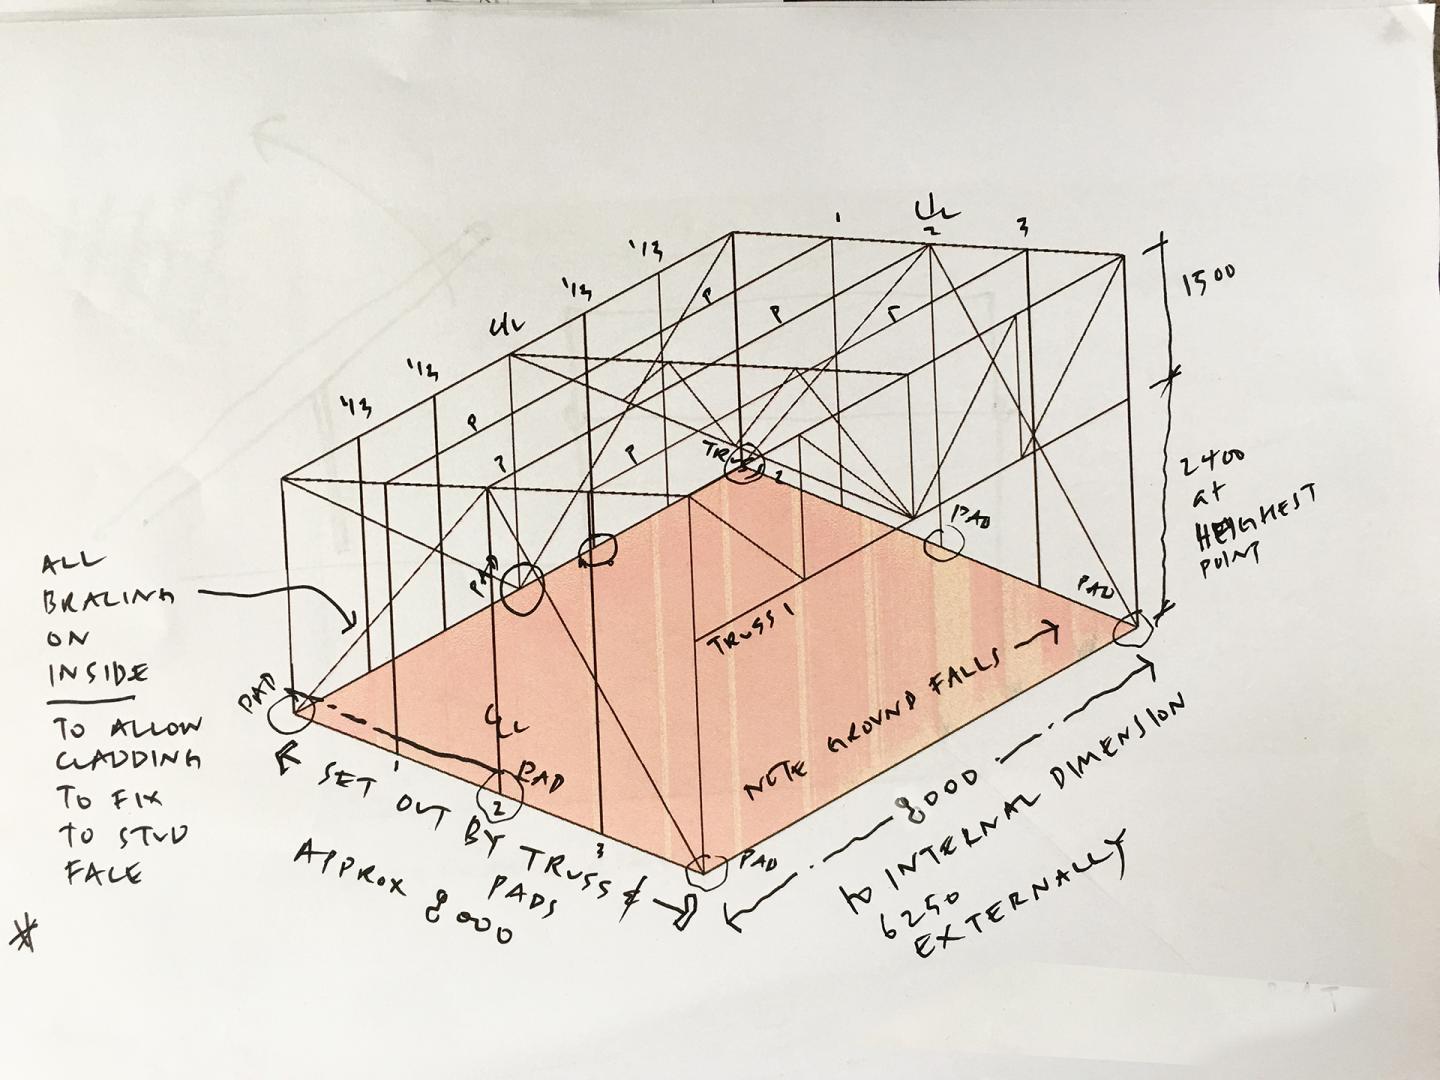 1 C/L 2 3
1/3
1/3
C/L
1/3
1/3
P
P
P
P
P
P
1500
2400
at
HEIGHEST
POINT
TRUSS 2
PAD
PAD
PAD
TRUSS 1
NOTE GROUND FALLS
ALL
BRACING
ON
INSIDE
TO ALLOW
CLADDING
TO FIX
TO STUD
FACE
PAD
C/L
PAD
1
2
3
PAD
SET OUT BY TRUSS &
PADS
APPROX 8000
8000
TO INTERNAL DIMENSION
6250
EXTERNALLY